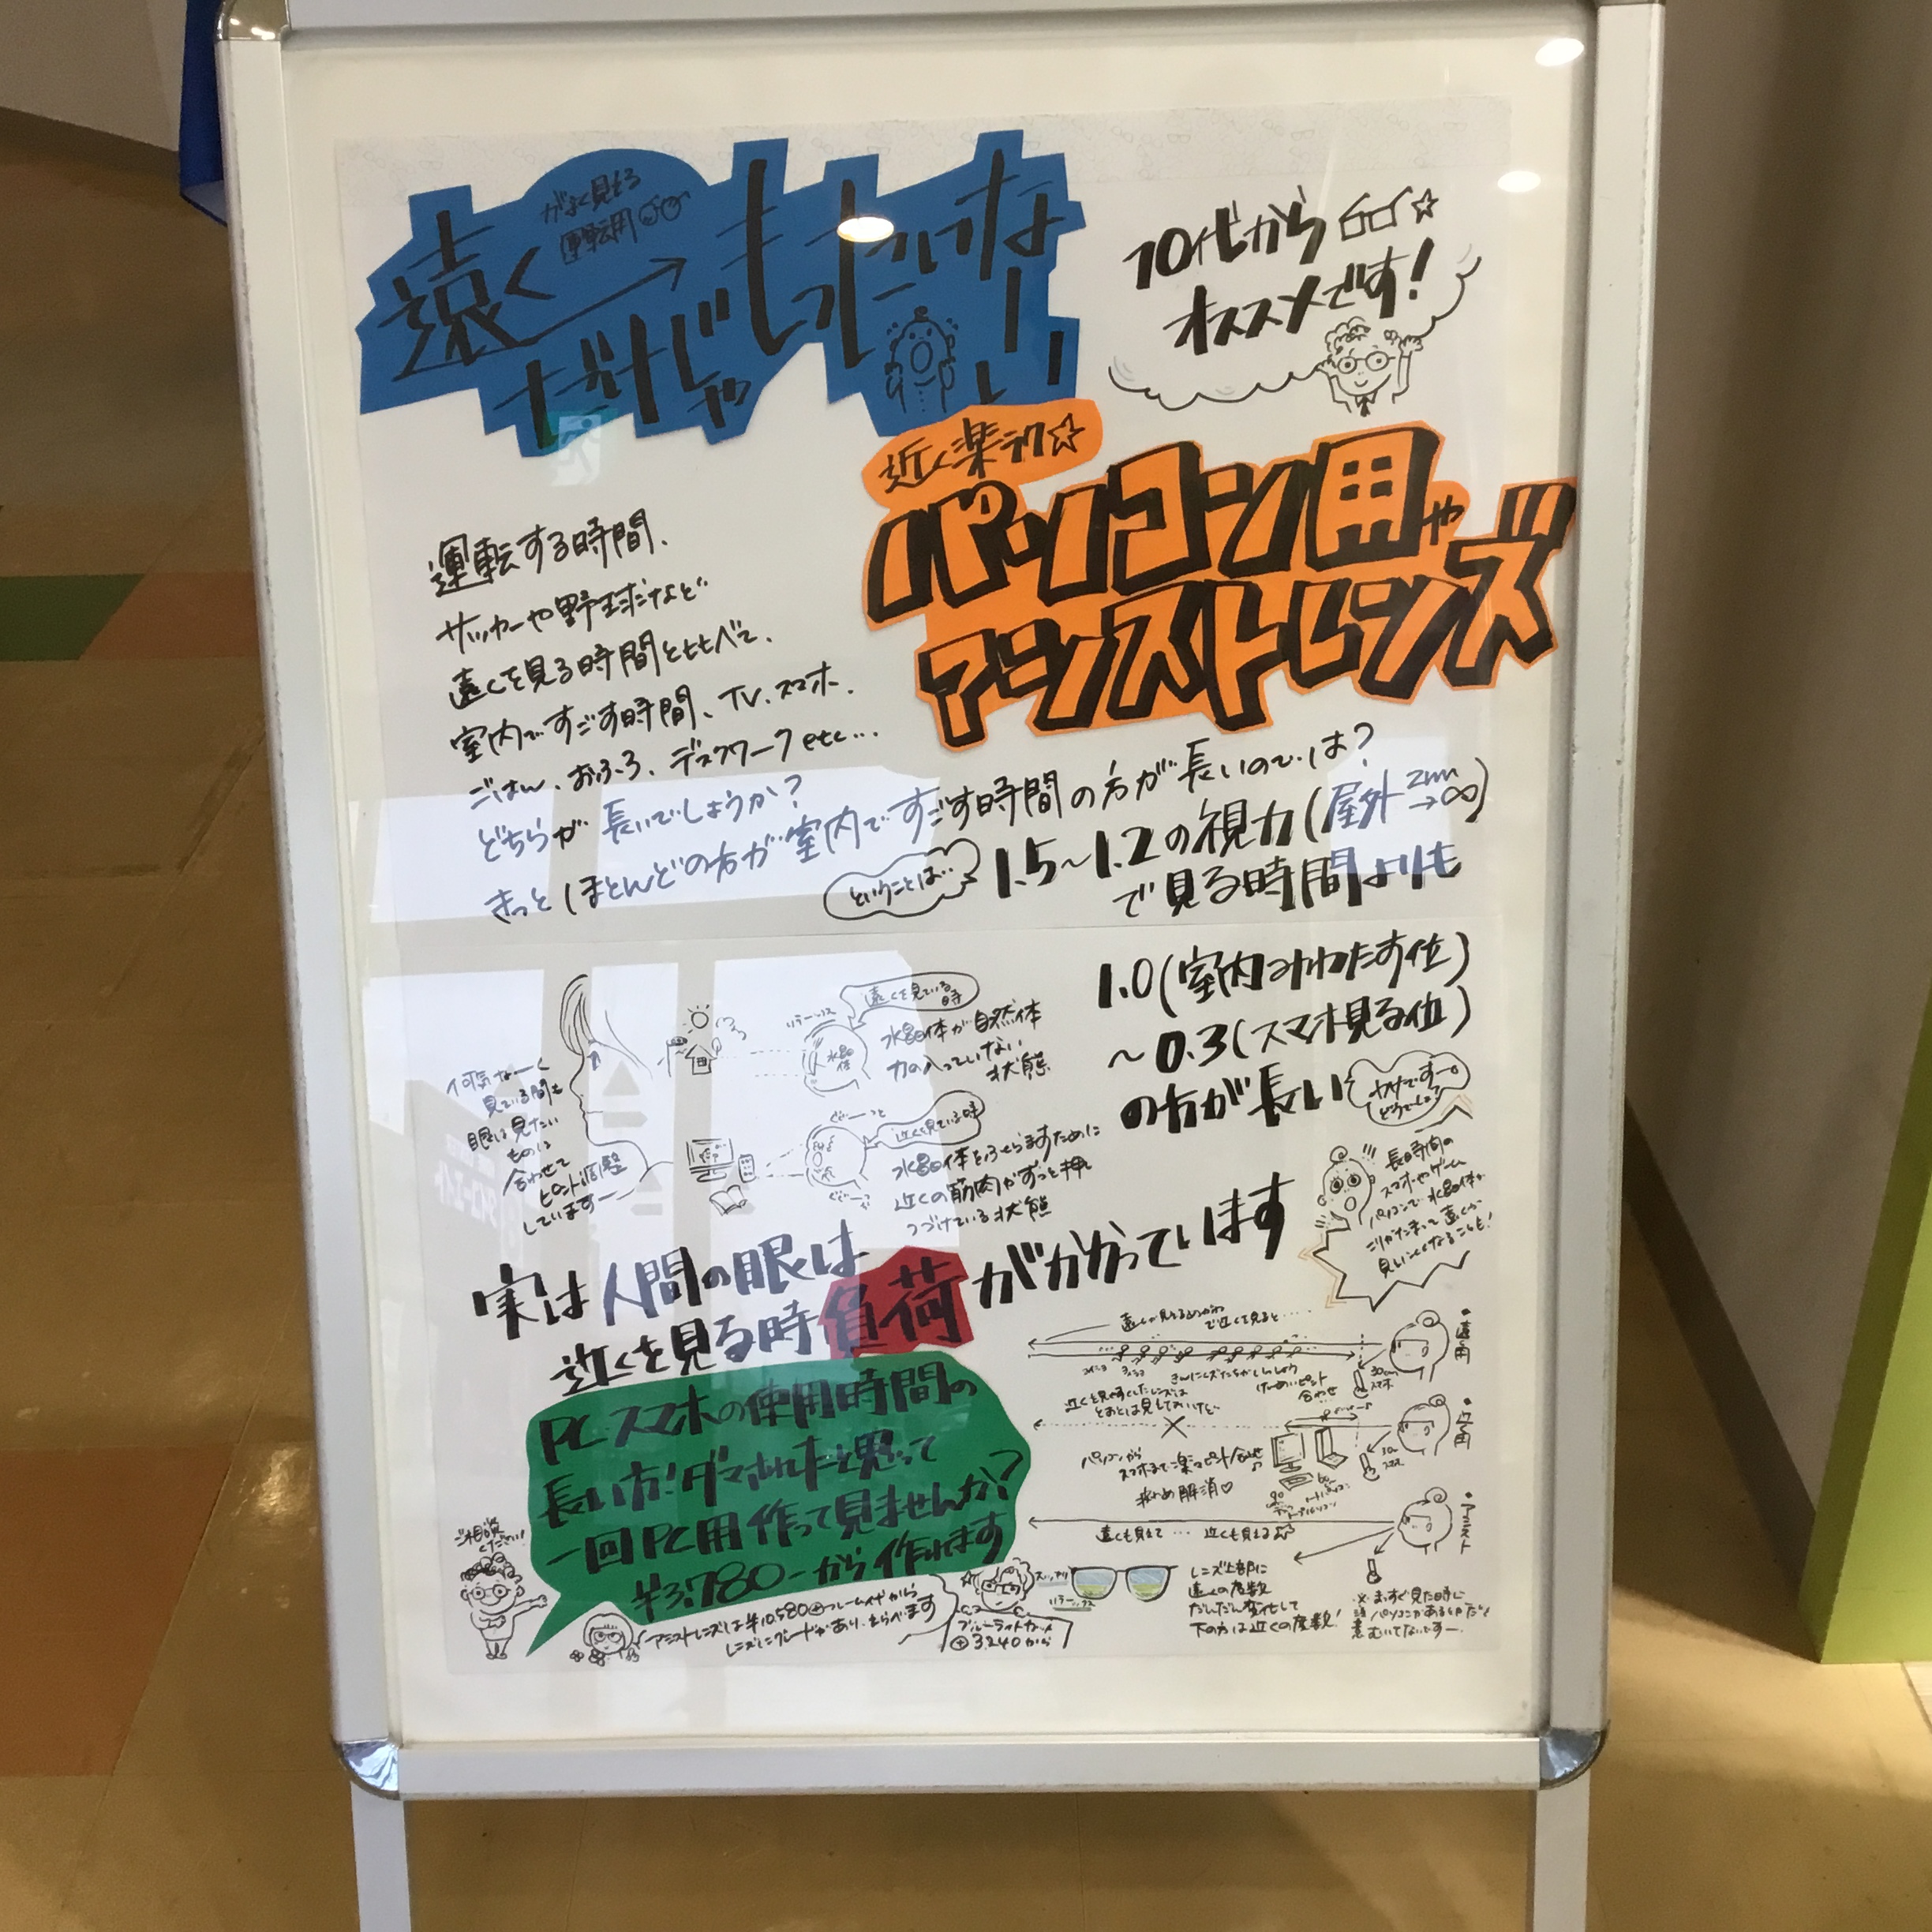 遠く
がよく見える
運転用
だけじゃ
もったいなーい
10代から
オススメです!
近く楽ラク☆
パソコン用や
アシストレンズ
運転する時間、
サッカーや野球など
遠くを見る時間とくらべて、
室内ですごす時間、TV、スマホ、
ごはん、おふろ、デスクワークetc…
どちらが長いでしょうか?
きっとほとんどの方が室内ですごす時間の方が長いのでは?
ということは…
1.5~1.2の視力(屋外 →∞)
で見る時間よりも
1.0(室内みわたす位)
~0.3(スマホ見る位)
の方が長い
何気なーく
見ている間も
眼は見たい
ものに
合わせて
ピント調整
していますー
遠くを見ている時
水晶体
水晶体が自然体
力の入っていない
状態
近くを見ている時
水晶体をふくらますために
近くの筋肉がずっと押し
つづけている状態
長時間の
スマホやゲーム
パソコンで水晶体が
こりかたまって遠くが
見いにくくなることも!
実は人間の眼は
近くを見る時負荷がかかっています
PC・スマホの使用時間の
長い方!ダマされたと思って
一回PC用作って見ませんか?
¥3,780-から作れます
ご相談
ください!
アシストレンズは¥10,580⊕フレーム代から
レンズにグレードがあり、えらべます
ブルーライトカット
⊕3,240から
・遠用
遠くが見えるめがね
で近くを見ると……
30cm
スマホ
合わせ
・近用
パソコンから
スマホまで楽にピント合わせ♪
疲れめ解消♡
・アシスト
遠くも見えて … 近くも見える♪
レンズ上部に
遠くの度数
だんだん変化して
下の方は近くの度数!
※まっすぐ見た時に
注意
パソコンがある位だと
むいてないですー。